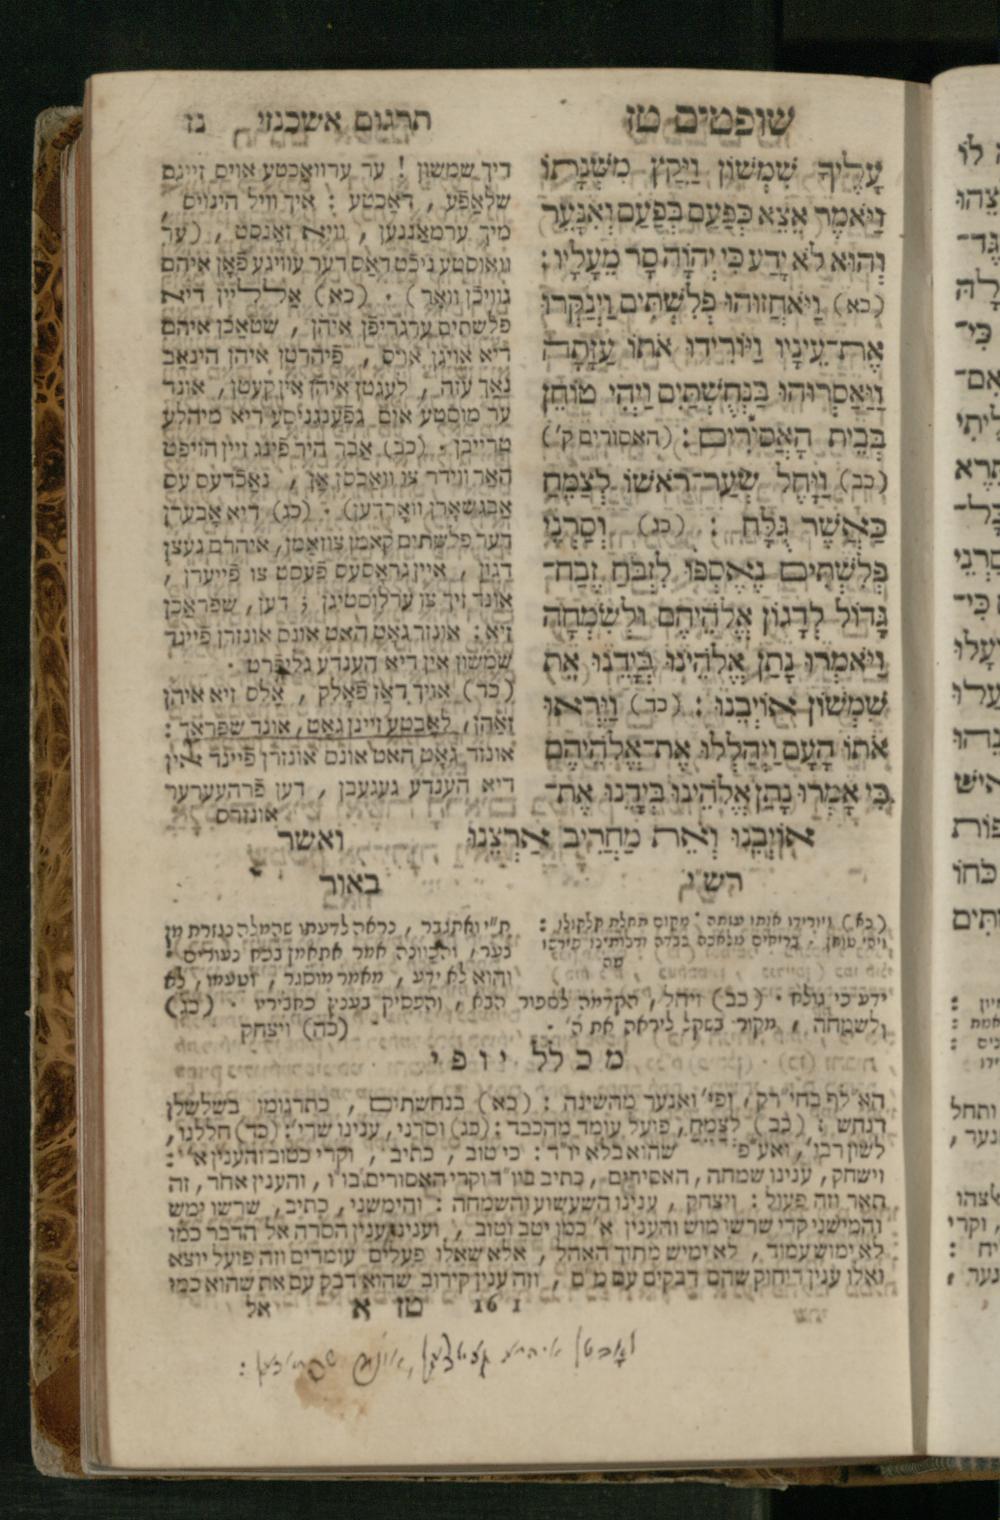 שופטים טז
תרגום אשכנזי נז
עָלֶיךָ שִׁמְשׁוֹן וַיִּקַץ מִשְּׁנָתוֹ
וַיֹּאמֶר אֵצֵא כְּפַעַם בְּפַעַם וְאִנָּעֵר
וְהוּא לֹא יָדַע כִּי יְהוָֹה סָר מֵעָלָיו :
(כא) וַיֹּאחֲזוּהוּ פְלִשְׁתִּים וַיְנַקְּרוּ
אֶת־עֵינָיו וַיּוֹרִידוּ אֹתוֹ עַזָּתָה
וַיַּאַסְרוּהוּ בַּנְחֻשְׁתַּיִם וַיְהִי טוֹחֵן
בְּבֵית הָאֲסִירִים : (האסורים ק')
(כב) וַיָּחֶל שְׂעַר־רֹאשׁוֹ לְצַמֵּחַ
כַּאֲשֶׁר גֻּלָּח : (כג) וְסַרְנֵי
פְלִשְׁתִּים נֶאֶסְפוּ לִזְבֹּחַ זֶבַח־
גָּדוֹל לְדָגוֹן אֱלֹהֵיהֶם וּלְשִׂמְחָה
וַיֹּאמְרוּ נָתַן אֱלֹהֵינוּ בְּיָדֵנוּ אֵת
שִׁמְשׁוֹן אוֹיְבֵנוּ : (כד) וַיִּרְאוּ
אֹתוֹ הָעָם וַיְהַלְלוּ אֶת־אֱלֹהֵיהֶם
כִּי אָמְרוּ נָתַן אֱלֹהֵינוּ בְיָדֵנוּ אֶת־
אוֹיְבֵנוּ וְאֵת מַחֲרִיב אַרְצֵנוּ
ואשר
דיך שמשון ! ער ערוואַכטע אויס זיינם
שלאַפֿע , דאַכטע : איך וויל הינויס ,
מיך ערמאַננען , וויא זאָנסט , (ער
וואוסטע ניכֿט דאַס דער עוויגע פֿאָן איהם
געוויכֿן וואַר) . (כא) אַללײן דיא
פלשתים ערגריפֿן איהן , שטאַכֿן איהם
דיא אויגן אויס , פֿיהרטן איהן הינאַב
נאַך עזה , לעגטן איהן אין קעטן , אונד
ער מוסטע אום געפֿענגניסע דיא מיהלע
טרייבן . (כב) אַבר היר פֿינג זיין הויפט
האַר ווידר צו וואַכסן אַן , נאַכֿדעם עס
אַבגשאָרן וואָרדען) . (כג) דיא אָבערן
דער פלשתים קאַמן צוזאַמן, איהרם געצן
דגון , איין גראָסעס פֿעסט צו פֿייערן ,
אונד זיך צו ערלוסטיגן ; דען , שפראַכֿן
זיא : אונזר גאָט האט אונס אונזרן פֿיינד
שמשון אין דיא הענדע געליפֿרט .
(כד) אויך דאַז פֿאָלק , אַלס זיא איהן
זאַהן, לאָבטע זיינן גאָט, אונד שפראַך :
אונזר גאָט האט אונס אונזרן פֿיינד אין
דיא הענדע געגעבן , דען פֿרהעערער
אונזרס
רש"י
(כא) ויורידו אותו עזתה . מקום תחלת קלקולו :
באור
ת"י ואתגבר , נראה לדעתו שהמלה נגזרת מן
נער , והכוונה אמר אתאמן בכח נעורים .
והוא לא ידע , מאמר מוסגר , וטעמו, לא
ידע כי גולח . (כב) ויחל , הקדמה לספור הבא , והפסיק בענין כאבירע . (כג)
ולשמחה , מקור במקל ליראה את ה' . (כה) ויצחק
מכלל יופי
האלף בחי"רק , ופי' ואנער מהשינה : (כא) בנחשתים , כתרגומו בשלשלן
דנחש : (כב) לצמח, פועל עומד מהכבד : (כג) וסרני, ענינו שרי : (כד) חללנו ,
לשון רבו', ואע"פ שהוא בלא יו"ד : כי טוב , כתיב , וקרי כטוב והענין א' :
וישחק, ענינו שמחה, האסירים, כתיב ביו"ד וקרי האסורים בו"ו , והענין אחר, זה
תאר וזה פעול : ויצחק , ענינו השעשוע והשמחה : והימשני, כתיב, שרשו ימש
והמישני קרי שרשו מוש והענין א' כמו יטב וטוב , וענינו ענין הסרה אל הדבר כמו
לא ימוש עמוד , לא ימיש מתוך האהל , אלא שאלו פעלים עומדים וזה פועל יוצא
ואלו ענין ריחוק שהם דבקים עם מ"ם , וזה ענין קירוב שהוא דבק עם את שהוא כמו
161 טז א אל